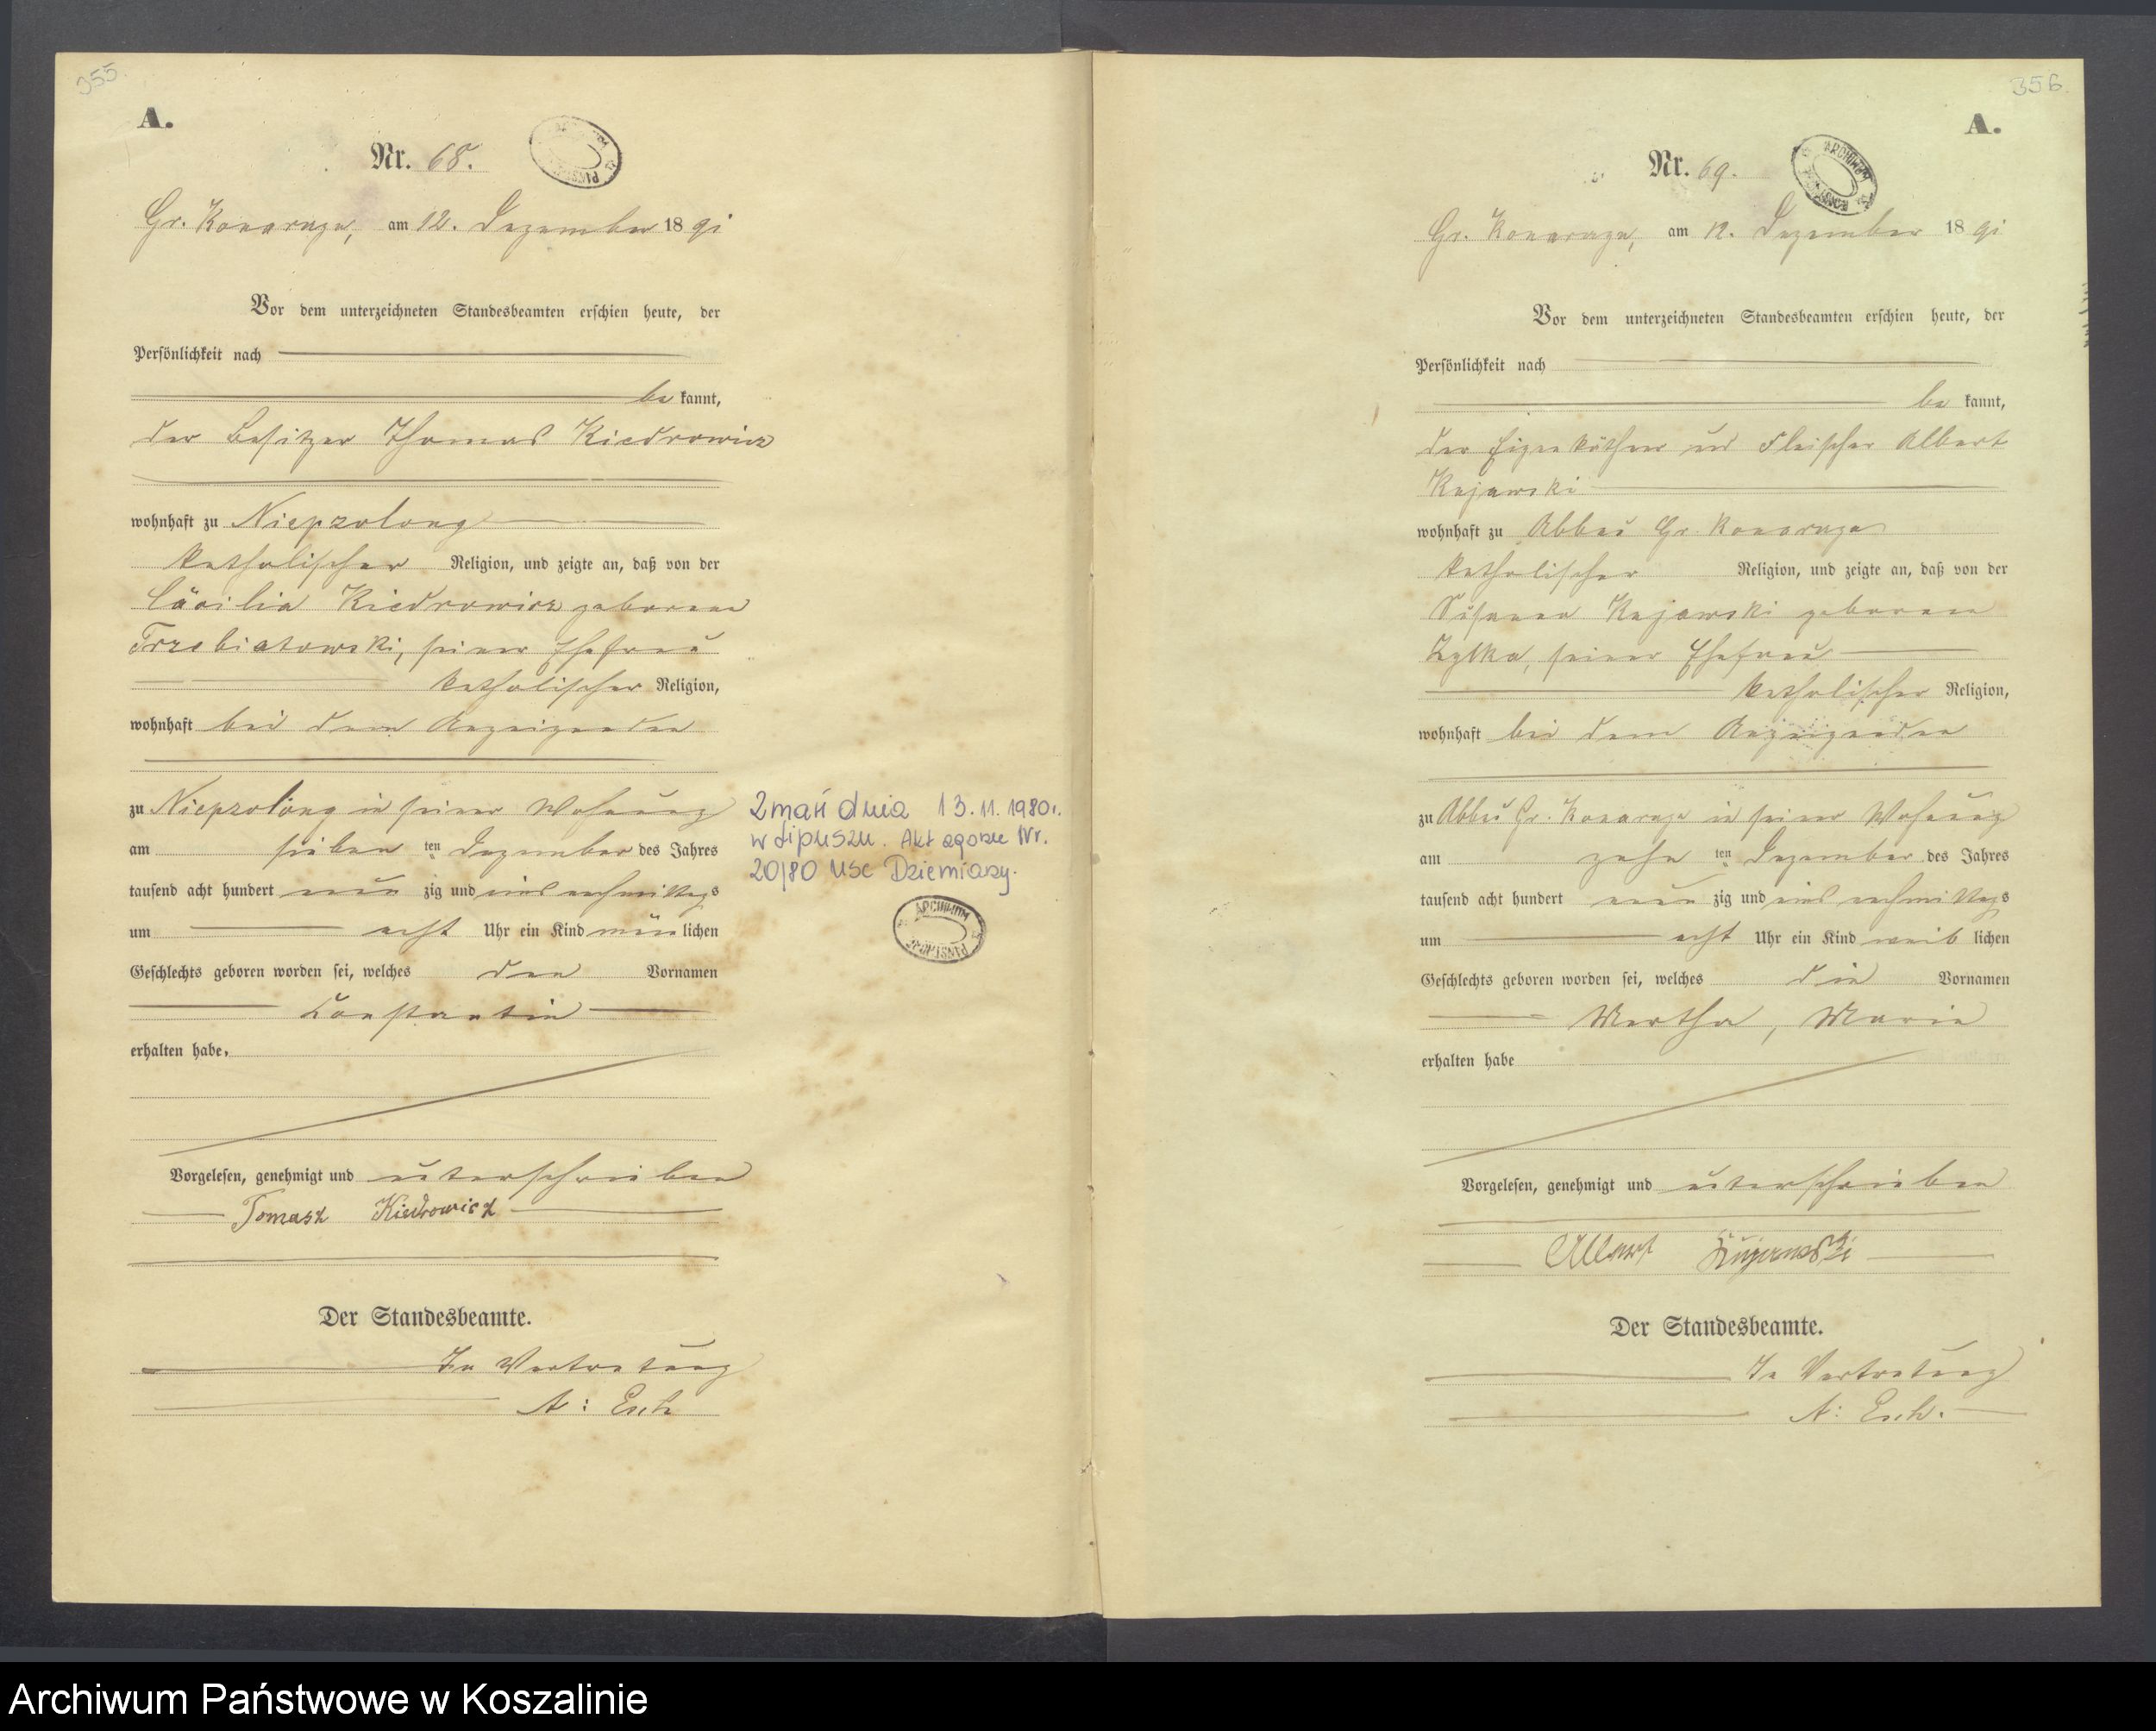 355.
A.
Nr. 68.
Gr. Konarzyn, am 12. Dezember 1891
Vor dem unterzeichneten Standesbeamten erschien heute, der
Persönlichkeit nach
be kannt,
der Besitzer Thomas Kiedrowicz
wohnhaft zu Niepzolong
katholischer Religion, und zeigte an, daß von der
Cäcilia Kiedrowicz geborene
Trzebiatowski, seiner Ehefrau
katholischer Religion,
wohnhaft bei dem Anzeigenden
zu Niepzolong in seiner Wohnung
am sieben ten Dezember des Jahres
tausend acht hundert neun zig und eins nachmittags
um acht Uhr ein Kind män lichen
Geschlechts geboren worden sei, welches den Vornamen
Constantin
erhalten habe.
Vorgelesen, genehmigt und unterschrieben
Tomasz Kiedrowicz
Der Standesbeamte.
In Vertretung
A: Esch
Zmarł dnia 13.11.1980r.
w Lipuszu. Akt zgonu Nr.
20/80 USC Dziemiany.
ARCHIWUM
356.
A.
Nr. 69.
ARCHIWUM
Gr. Konarzyn, am 12. Dezember 1891
Vor dem unterzeichneten Standesbeamten erschien heute, der
Persönlichkeit nach
be kannt,
der Eigenkäthner und Fleischer Albert
Kujawski
wohnhaft zu Abbau Gr. Konarzyn
katholischer Religion, und zeigte an, daß von der
Susanna Kujawski geborene
Zylka, seiner Ehefrau
katholischer Religion,
wohnhaft bei dem Anzeigenden
zu Abbau Gr. Konarzyn in seiner Wohnung
am zehn ten Dezember des Jahres
tausend acht hundert neun zig und eins nachmittags
um acht Uhr ein Kind weib lichen
Geschlechts geboren worden sei, welches die Vornamen
Martha, Maria
erhalten habe
Vorgelesen, genehmigt und unterschrieben
Albert Kujawski
Der Standesbeamte.
In Vertretung
A: Esch.
Archiwum Państwowe w Koszalinie